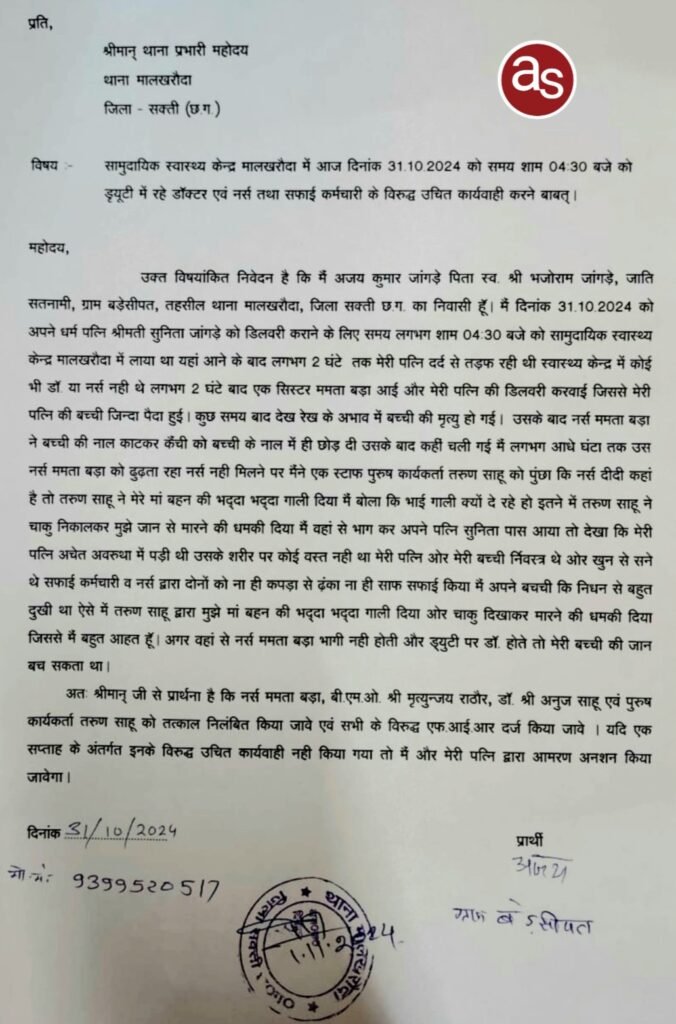 प्रति,
श्रीमान् थाना प्रभारी महोदय
थाना मालखरौदा
जिला - सक्ती (छ.ग.)
as
विषय :- सामुदायिक स्वास्थ्य केन्द्र मालखरौदा में आज दिनांक 31.10.2024 को समय शाम 04:30 बजे को
ड्यूटी में रहे डॉक्टर एवं नर्स तथा सफाई कर्मचारी के विरुद्ध उचित कार्यवाही करने बाबत्।
महोदय,
उक्त विषयांकित निवेदन है कि मैं अजय कुमार जांगड़े पिता स्व. श्री भजोराम जांगड़े, जाति
सतनामी, ग्राम बड़ेसीपत, तहसील थाना मालखरौदा, जिला सक्ती छ.ग. का निवासी हूँ। मैं दिनांक 31.10.2024 को
अपने धर्म पत्नि श्रीमती सुनिता जांगड़े को डिलवरी कराने के लिए समय लगभग शाम 04:30 बजे को सामुदायिक स्वास्थ्य
केन्द्र मालखरौदा में लाया था यहां आने के बाद लगभग 2 घंटे तक मेरी पत्नि दर्द से तड़फ रही थी स्वास्थ्य केन्द्र में कोई
भी डॉ. या नर्स नही थे लगभग 2 घंटे बाद एक सिस्टर ममता बड़ा आई और मेरी पत्नि की डिलवरी करवाई जिससे मेरी
पत्नि की बच्ची जिन्दा पैदा हुई। कुछ समय बाद देख रेख के अभाव में बच्ची की मृत्यु हो गई। उसके बाद नर्स ममता बड़ा
ने बच्ची की नाल काटकर कैंची को बच्ची के नाल में ही छोड़ दी उसके बाद कहीं चली गई मैं लगभग आधे घंटा तक उस
नर्स ममता बड़ा को ढुढ़ता रहा नर्स नही मिलने पर मैंने एक स्टाफ पुरुष कार्यकर्ता तरुण साहू को पुंछा कि नर्स दीदी कहां
है तो तरुण साहू ने मेरे मां बहन की भद्दा भद्दा गाली दिया मैं बोला कि भाई गाली क्यों दे रहे हो इतने में तरुण साहू ने
चाकु निकालकर मुझे जान से मारने की धमकी दिया मैं वहां से भाग कर अपने पत्नि सुनिता पास आया तो देखा कि मेरी
पत्नि अचेत अवरुथा में पड़ी थी उसके शरीर पर कोई वस्त नही था मेरी पत्नि ओर मेरी बच्ची र्निवस्त्र थे ओर खुन से सने
थे सफाई कर्मचारी व नर्स द्वारा दोनों को ना ही कपड़ा से ढ़ंका ना ही साफ सफाई किया मैं अपने बचची कि निधन से बहुत
दुखी था ऐसे में तरुण साहू द्वारा मुझे मां बहन की भद्दा भद्दा गाली दिया ओर चाकु दिखाकर मारने की धमकी दिया
जिससे मैं बहुत आहत हूँ। अगर वहां से नर्स ममता बड़ा भागी नही होती और ड्युटी पर डॉ. होते तो मेरी बच्ची की जान
बच सकता था।
अतः श्रीमान् जी से प्रार्थना है कि नर्स ममता बड़ा, बी.एम.ओ. श्री मृत्युन्जय राठौर, डॉ. श्री अनुज साहू एवं पुरुष
कार्यकर्ता तरुण साहू को तत्काल निलंबित किया जावे एवं सभी के विरुद्ध एफ.आई.आर दर्ज किया जावे । यदि एक
सप्ताह के अंतर्गत इनके विरुद्ध उचित कार्यवाही नही किया गया तो मैं और मेरी पत्नि द्वारा आमरण अनशन किया
जावेगा।
दिनांक 31/10/2024
प्रार्थी
अजय
मो.नं: 9399520517
ग्राम बड़ेसीपत
थाना मालखरौदा